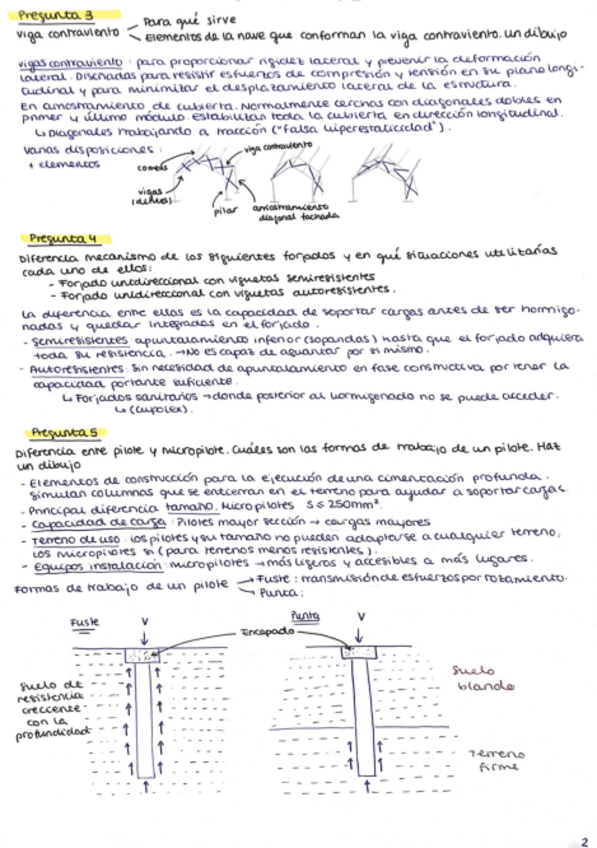 Pregunta 3
viga contraviento
Para qué sirve
Elementos de la nave que conforman la viga contraviento. un dibujo
vigas contraviento : para proporcionar rigidez lateral y prevenir la deformación
lateral. Diseñadas para resistir esfuerzos de compresión y tensión en su plano longi-
tudinal y para minimizar el desplazamiento lateral de la estructura.
En arriostramiento de cubierta. Normalmente cerchas con diagonales dobles en
primer y último módulo. Estabilizan toda la cubierta en dirección longitudinal.
↳ Diagonales trabajando a tracción ("falsa hiperestaticidad").
varias disposiciones :
+ elementos
correas
viga contraviento
vigas
pilar
arriostramiento
diagonal fachada
Pregunta 4
Diferencia mecanismo de los siguientes forjados y en qué situaciones utilizarías
cada uno de ellos:
- Forjado unidireccional con viguetas semiresistentes
- Forjado unidireccional con viguetas autoresistentes.
La diferencia entre ellas es la capacidad de soportar cargas antes de ser hormigo-
nadas y quedar integradas en el forjado.
- Semiresistentes apuntalamiento inferior (sopandas) hasta que el forjado adquiera
toda su resistencia. → No es capaz de aguantar por si mismo.
- Autoresistentes: Sin necesidad de apuntalamiento en fase constructiva por tener la
capacidad portante suficiente.
↳ Forjados sanitarios → donde posterior al hormigonado no se puede acceder.
↳ (cupolex).
Pregunta 5
Diferencia entre pilote y micropilote. Cuáles son las formas de trabajo de un pilote. Haz
un dibujo
- Elementos de construcción para la ejecución de una cimentación profunda.
Simulan columnas que se entierran en el terreno para ayudar a soportar cargas.
- Principal diferencia tamaño. Micropilotes S ≤ 250mm².
- Capacidad de carga: Pilotes mayor sección → cargas mayores
- Terreno de uso: los pilotes y su tamaño no pueden adaptarse a cualquier terreno,
los micropilotes si (para terrenos menos resistentes).
- Equipos instalación: micropilotes → más ligeros y accesibles a más lugares.
Formas de trabajo de un pilote
Fuste : transmisión de esfuerzos por rozamiento.
Punta :
Fuste
V
Punta
V
Encepado
suelo de
resistencia
creciente
con la
profundidad
Suelo
blando
Terreno
firme
2